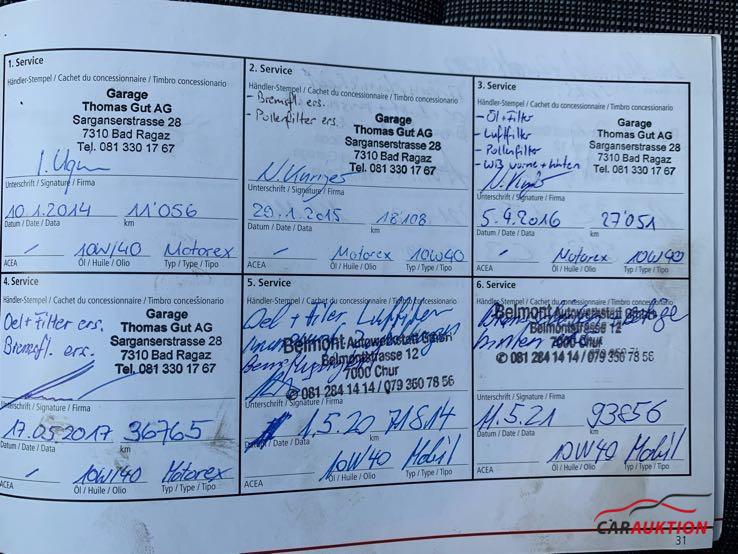 1. Service
Händler-Stempel / Cachet du concessionnaire / Timbro concessionario
Garage
Thomas Gut AG
Sarganserstrasse 28
7310 Bad Ragaz
Tel. 081 330 17 67
Unterschrift / Signature / Firma
10.1.2014 11'056
Datum / Date / Data km
- 10W/40 Motorex
ACEA Öl / Huile / Olio Typ / Type / Tipo
2. Service
Händler-Stempel / Cachet du concessionnaire / Timbro concessionario
- Bremsfl. ers.
- Pollenfilter ers.
Garage
Thomas Gut AG
Sarganserstrasse 28
7310 Bad Ragaz
Tel. 081 330 17 67
Unterschrift / Signature / Firma
29.1.2015 18'108
Datum / Date / Data km
- Motorex 10W40
ACEA Öl / Huile / Olio Typ / Type / Tipo
3. Service
Händler-Stempel / Cachet du concessionnaire / Timbro concessionario
- Öl + Filter
- Luftfilter
- Pollenfilter
- WiB vorne + hinten
Garage
Thomas Gut AG
Sarganserstrasse 28
7310 Bad Ragaz
Tel. 081 330 17 67
Unterschrift / Signature / Firma
5.4.2016 27'051
Datum / Date / Data km
- Motorex 10W40
ACEA Öl / Huile / Olio Typ / Type / Tipo
4. Service
Händler-Stempel / Cachet du concessionnaire / Timbro concessionario
Oel + Filter ers.
Bremsfl. ers.
Garage
Thomas Gut AG
Sarganserstrasse 28
7310 Bad Ragaz
Tel. 081 330 17 67
Unterschrift / Signature / Firma
17.05.2017 36765
Datum / Date / Data km
- 10W/40 Motorex
ACEA Öl / Huile / Olio Typ / Type / Tipo
5. Service
Händler-Stempel / Cachet du concessionnaire / Timbro concessionario
Oel + Filter Luftfilter
Belmont Autowerkstatt GmbH
Belmontstrasse 12
7000 Chur
✆ 081 284 14 14 / 079 350 78 56
Unterschrift / Signature / Firma
1.5.20 71814
Datum / Date / Data km
10W40 Mobil
ACEA Öl / Huile / Olio Typ / Type / Tipo
6. Service
Händler-Stempel / Cachet du concessionnaire / Timbro concessionario
Belmont Autowerkstatt GmbH
Belmontstrasse 12
7000 Chur
✆ 081 284 14 14 / 079 350 78 56
Unterschrift / Signature / Firma
11.5.21 93856
Datum / Date / Data km
10W40 Mobil
ACEA Öl / Huile / Olio Typ / Type / Tipo
CARAUKTION
31